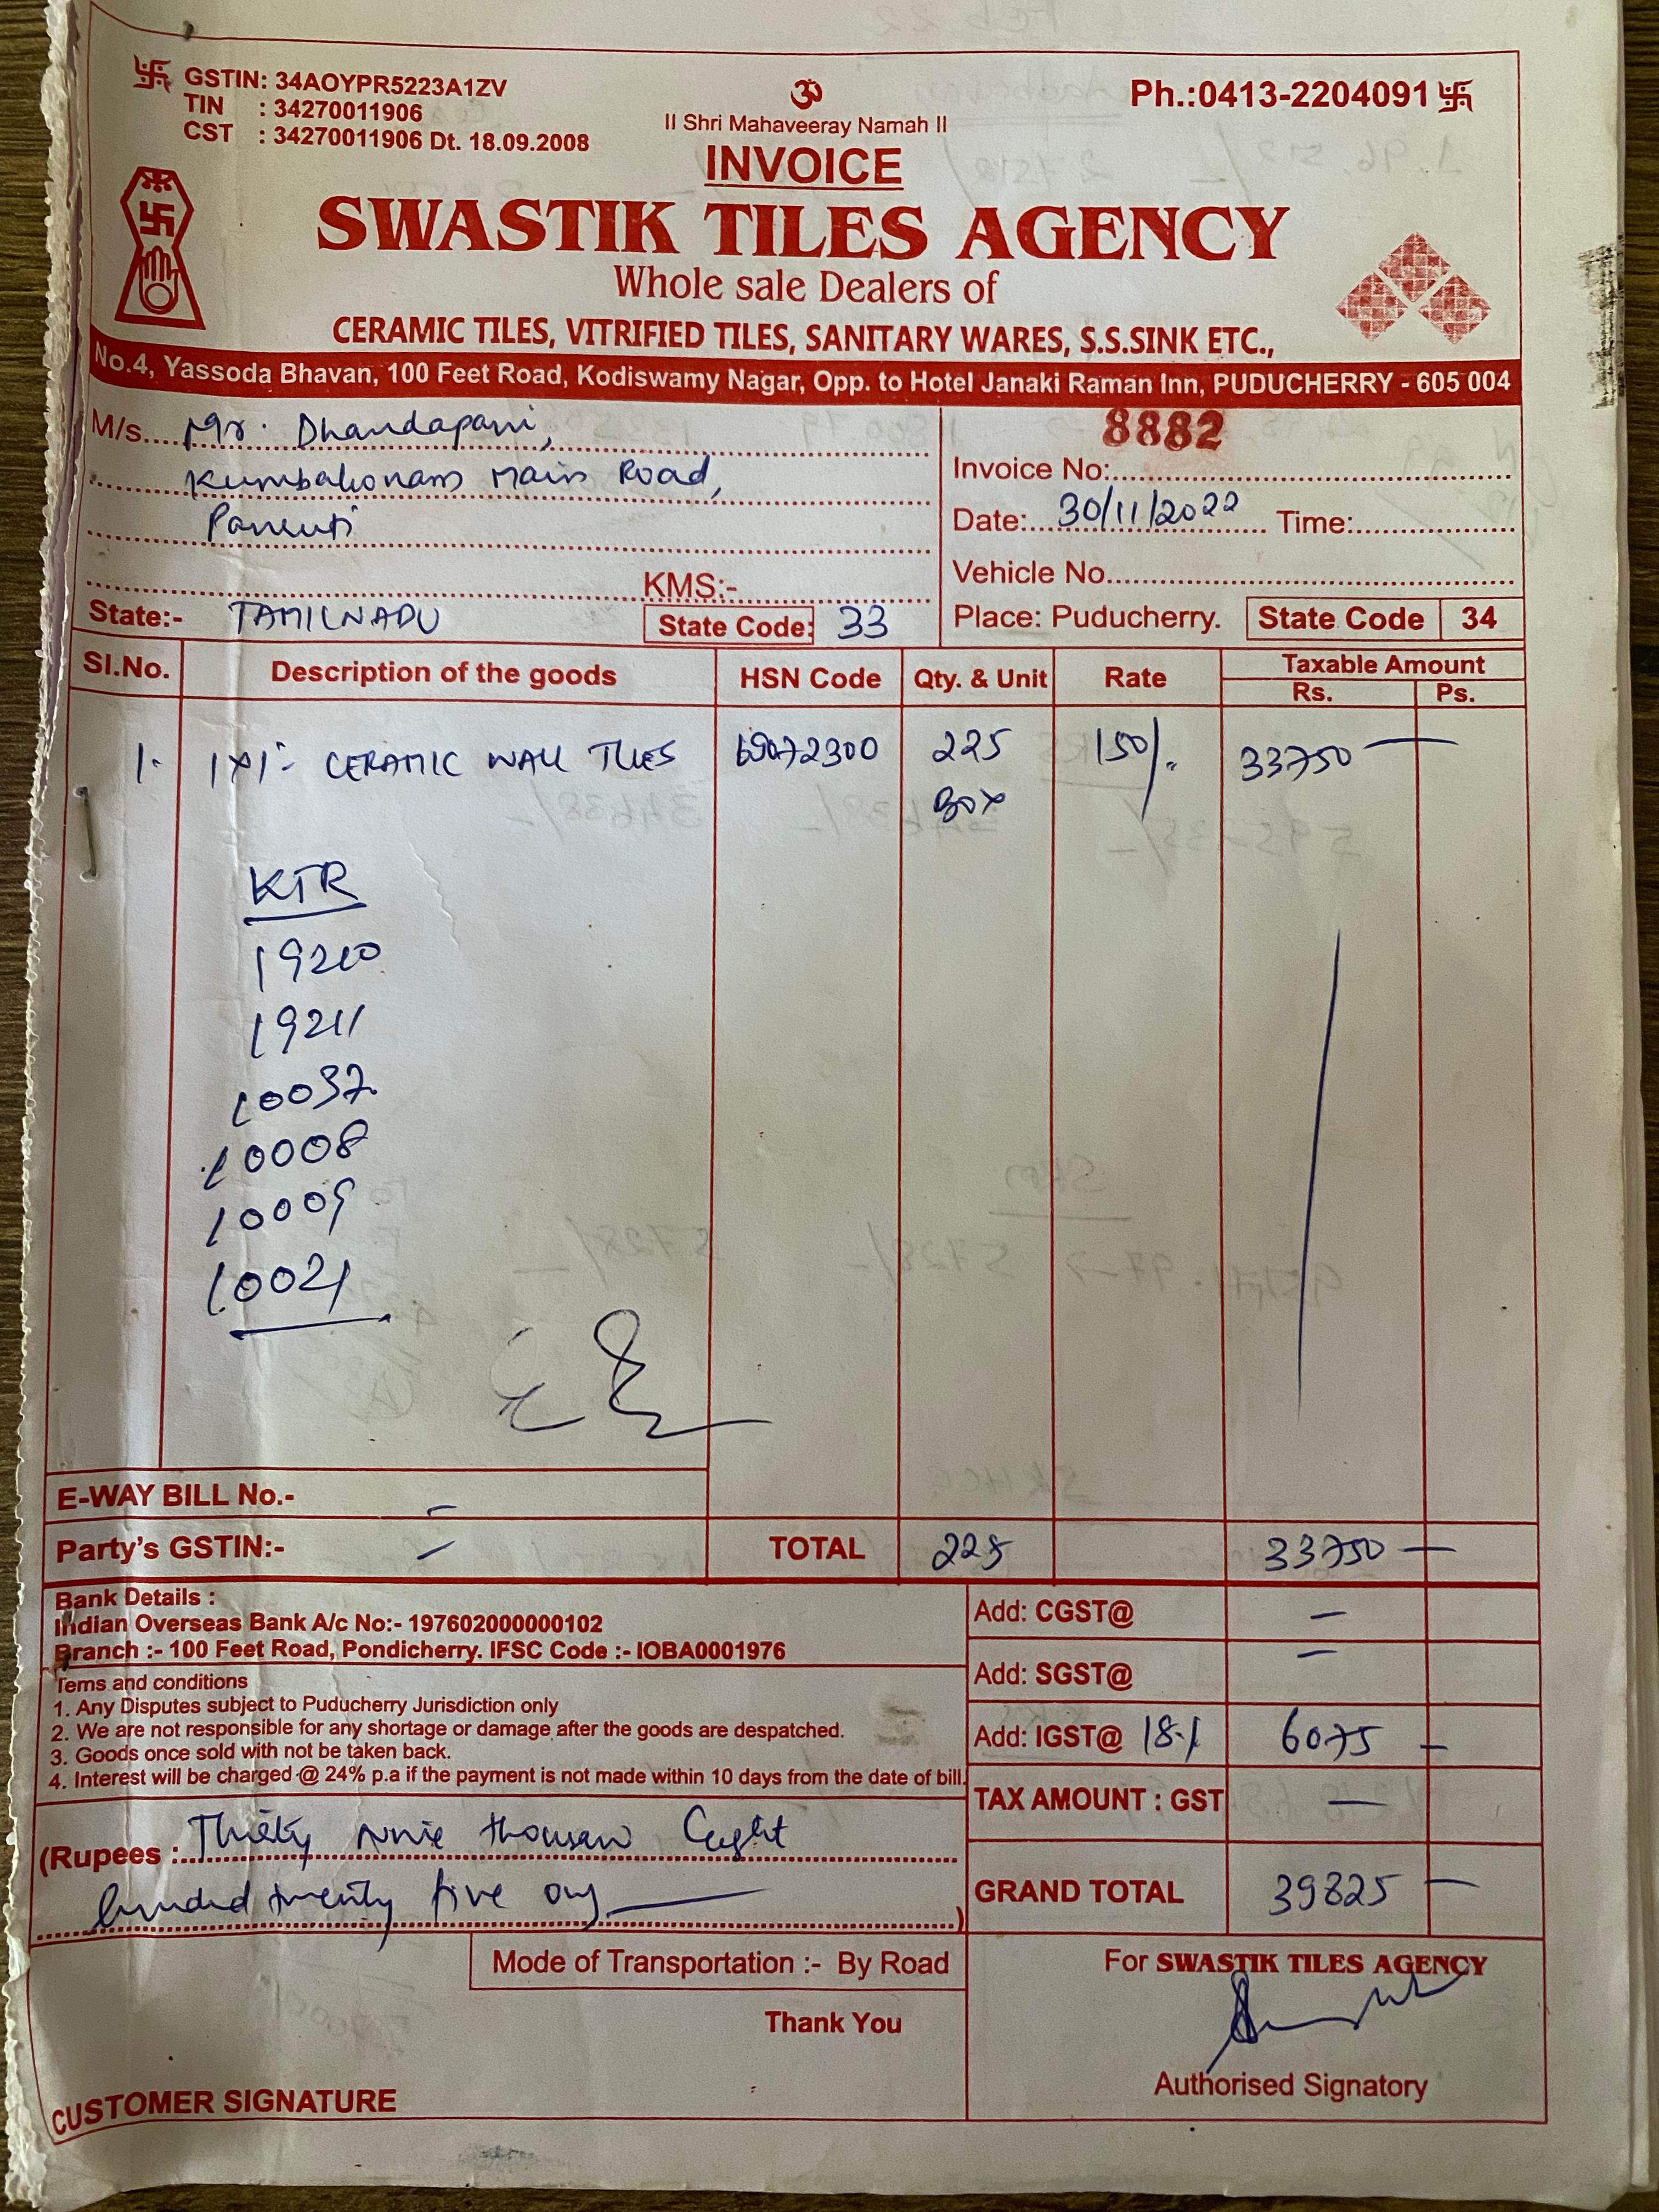 GSTIN: 34AOYPR5223A1ZV
TIN : 34270011906
CST : 34270011906 Dt. 18.09.2008
ॐ
II Shri Mahaveeray Namah II
Ph.:0413-2204091
INVOICE
SWASTIK TILES AGENCY
Whole sale Dealers of
CERAMIC TILES, VITRIFIED TILES, SANITARY WARES, S.S.SINK ETC.,
No.4, Yassoda Bhavan, 100 Feet Road, Kodiswamy Nagar, Opp. to Hotel Janaki Raman Inn, PUDUCHERRY - 605 004
M/s.... Mr. Dhandapani,
Kumbakonam Main Road,
Panruti
KMS:-
State:- TAMILNADU State Code: 33
8882
Invoice No:
Date: 30/11/2022 Time:
Vehicle No.
Place: Puducherry. State Code 34
Sl.No. Description of the goods HSN Code Qty. & Unit Rate Taxable Amount
Rs. Ps.
1. 1x1 - CERAMIC WALL TILES 69072300 225 150/. 33750 —
BOX
KTR
19210
19211
10037
10008
10009
10021
E-WAY BILL No.- —
Party's GSTIN:- — TOTAL 225 33750 —
Bank Details :
Indian Overseas Bank A/c No:- 197602000000102
Branch :- 100 Feet Road, Pondicherry. IFSC Code :- IOBA0001976
Tems and conditions
1. Any Disputes subject to Puducherry Jurisdiction only
2. We are not responsible for any shortage or damage after the goods are despatched.
3. Goods once sold with not be taken back.
4. Interest will be charged @ 24% p.a if the payment is not made within 10 days from the date of bill.
Add: CGST@ —
Add: SGST@ —
Add: IGST@ 18% 6075 —
TAX AMOUNT : GST —
GRAND TOTAL 39825 —
(Rupees : Thirty Nine thousan Eight
hunded twenty five ony )
Mode of Transportation :- By Road
Thank You
CUSTOMER SIGNATURE
For SWASTIK TILES AGENCY
Authorised Signatory